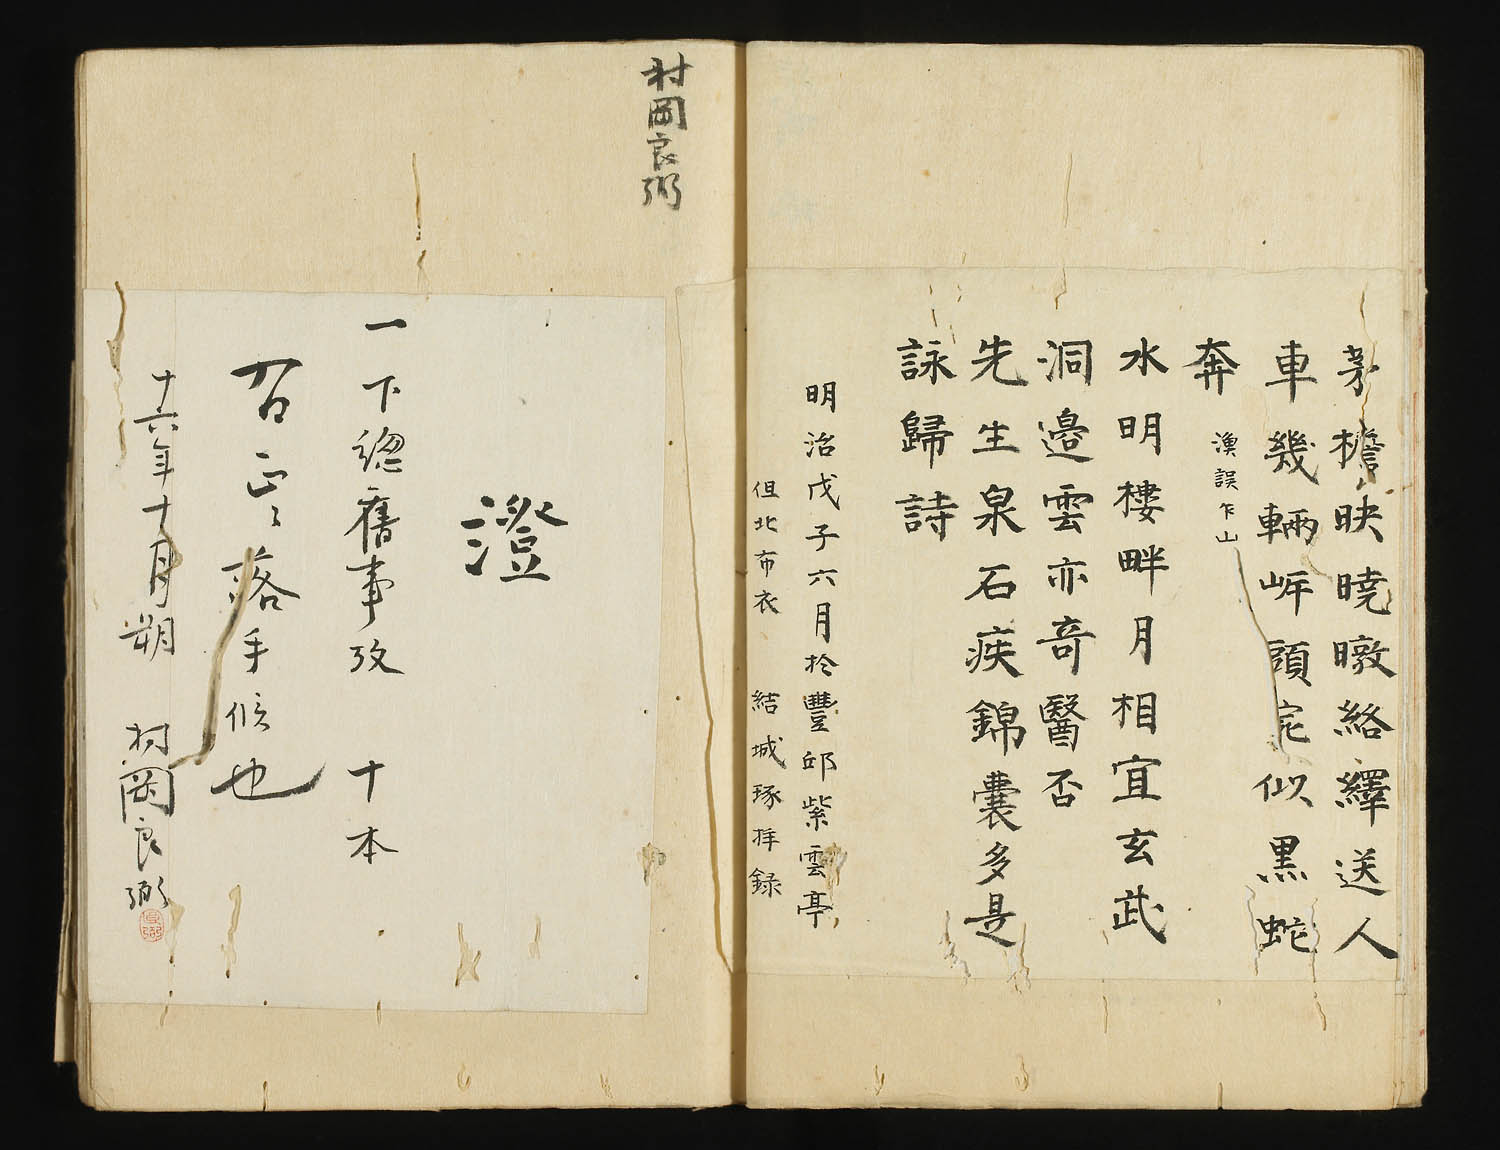 茅檐映曉暾絡繹送人
車幾輛岼頭宛似黒蛇
奔
漁誤乍山
水明樓畔月相宜玄武
洞邉雲亦奇醫否
先生泉石疾錦囊多是
詠歸詩
明治戊子六月於豐邱紫雲亭
但北布衣 結城琢拜録
村岡良弼
澄
一下總舊事攷 十本
右正ニ落手候也
十六年十月朔 村岡良弼